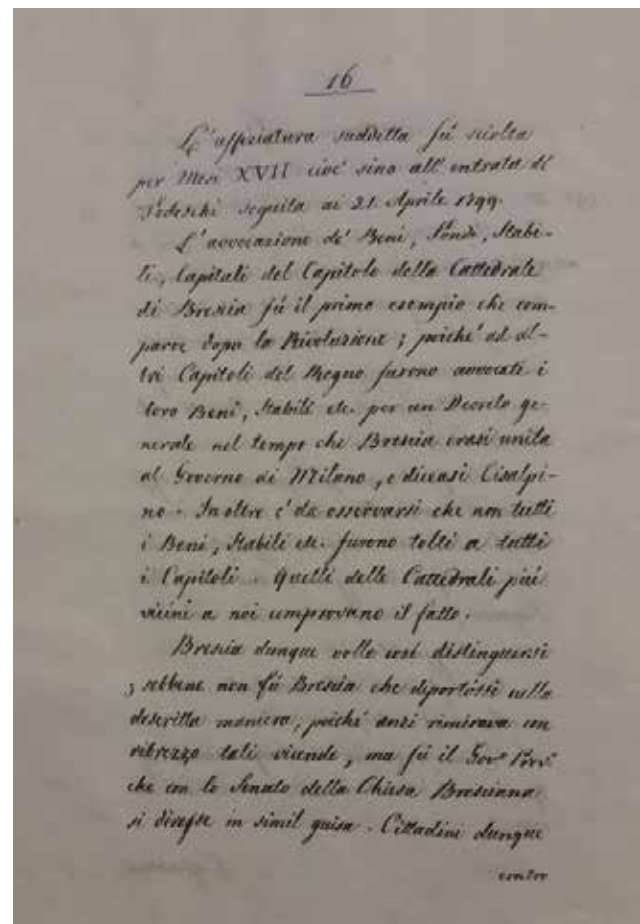 16
L'uffiziatura suddetta fù sciolta
per Mesi XVII cioè sino all'entrata de
Tedeschi seguita ai 21. Aprile 1799.
L'avvocazione de' Beni, Fondi, Stabi-
li, Capitali del Capitolo della Cattedrale
di Brescia fù il primo esempio che com-
parve dopo la Rivoluzione; poiché ad al-
tri Capitoli del Regno furono avvocati i
loro Beni, Stabili etc. per un Decreto ge-
nerale nel tempo che Brescia erasi unita
al Governo di Milano, e diceasi Cisalpi-
no. Inoltre è da osservarsi che non tutti
i Beni, Stabili etc. furono tolti a tutti
i Capitoli. Quelli delle Cattedrali più
vicini a noi comprovano il fatto.
Brescia dunque volle così distinguersi
; sebbene non fù Brescia che diportossi nella
descritta maniera, poiché anzi rimirava con
ribrezzo tali vicende, ma fù il Gov.º Prov.º
che con lo Senato della Chiesa Bresciana
si diresse in simil guisa. Cittadini dunque
contro